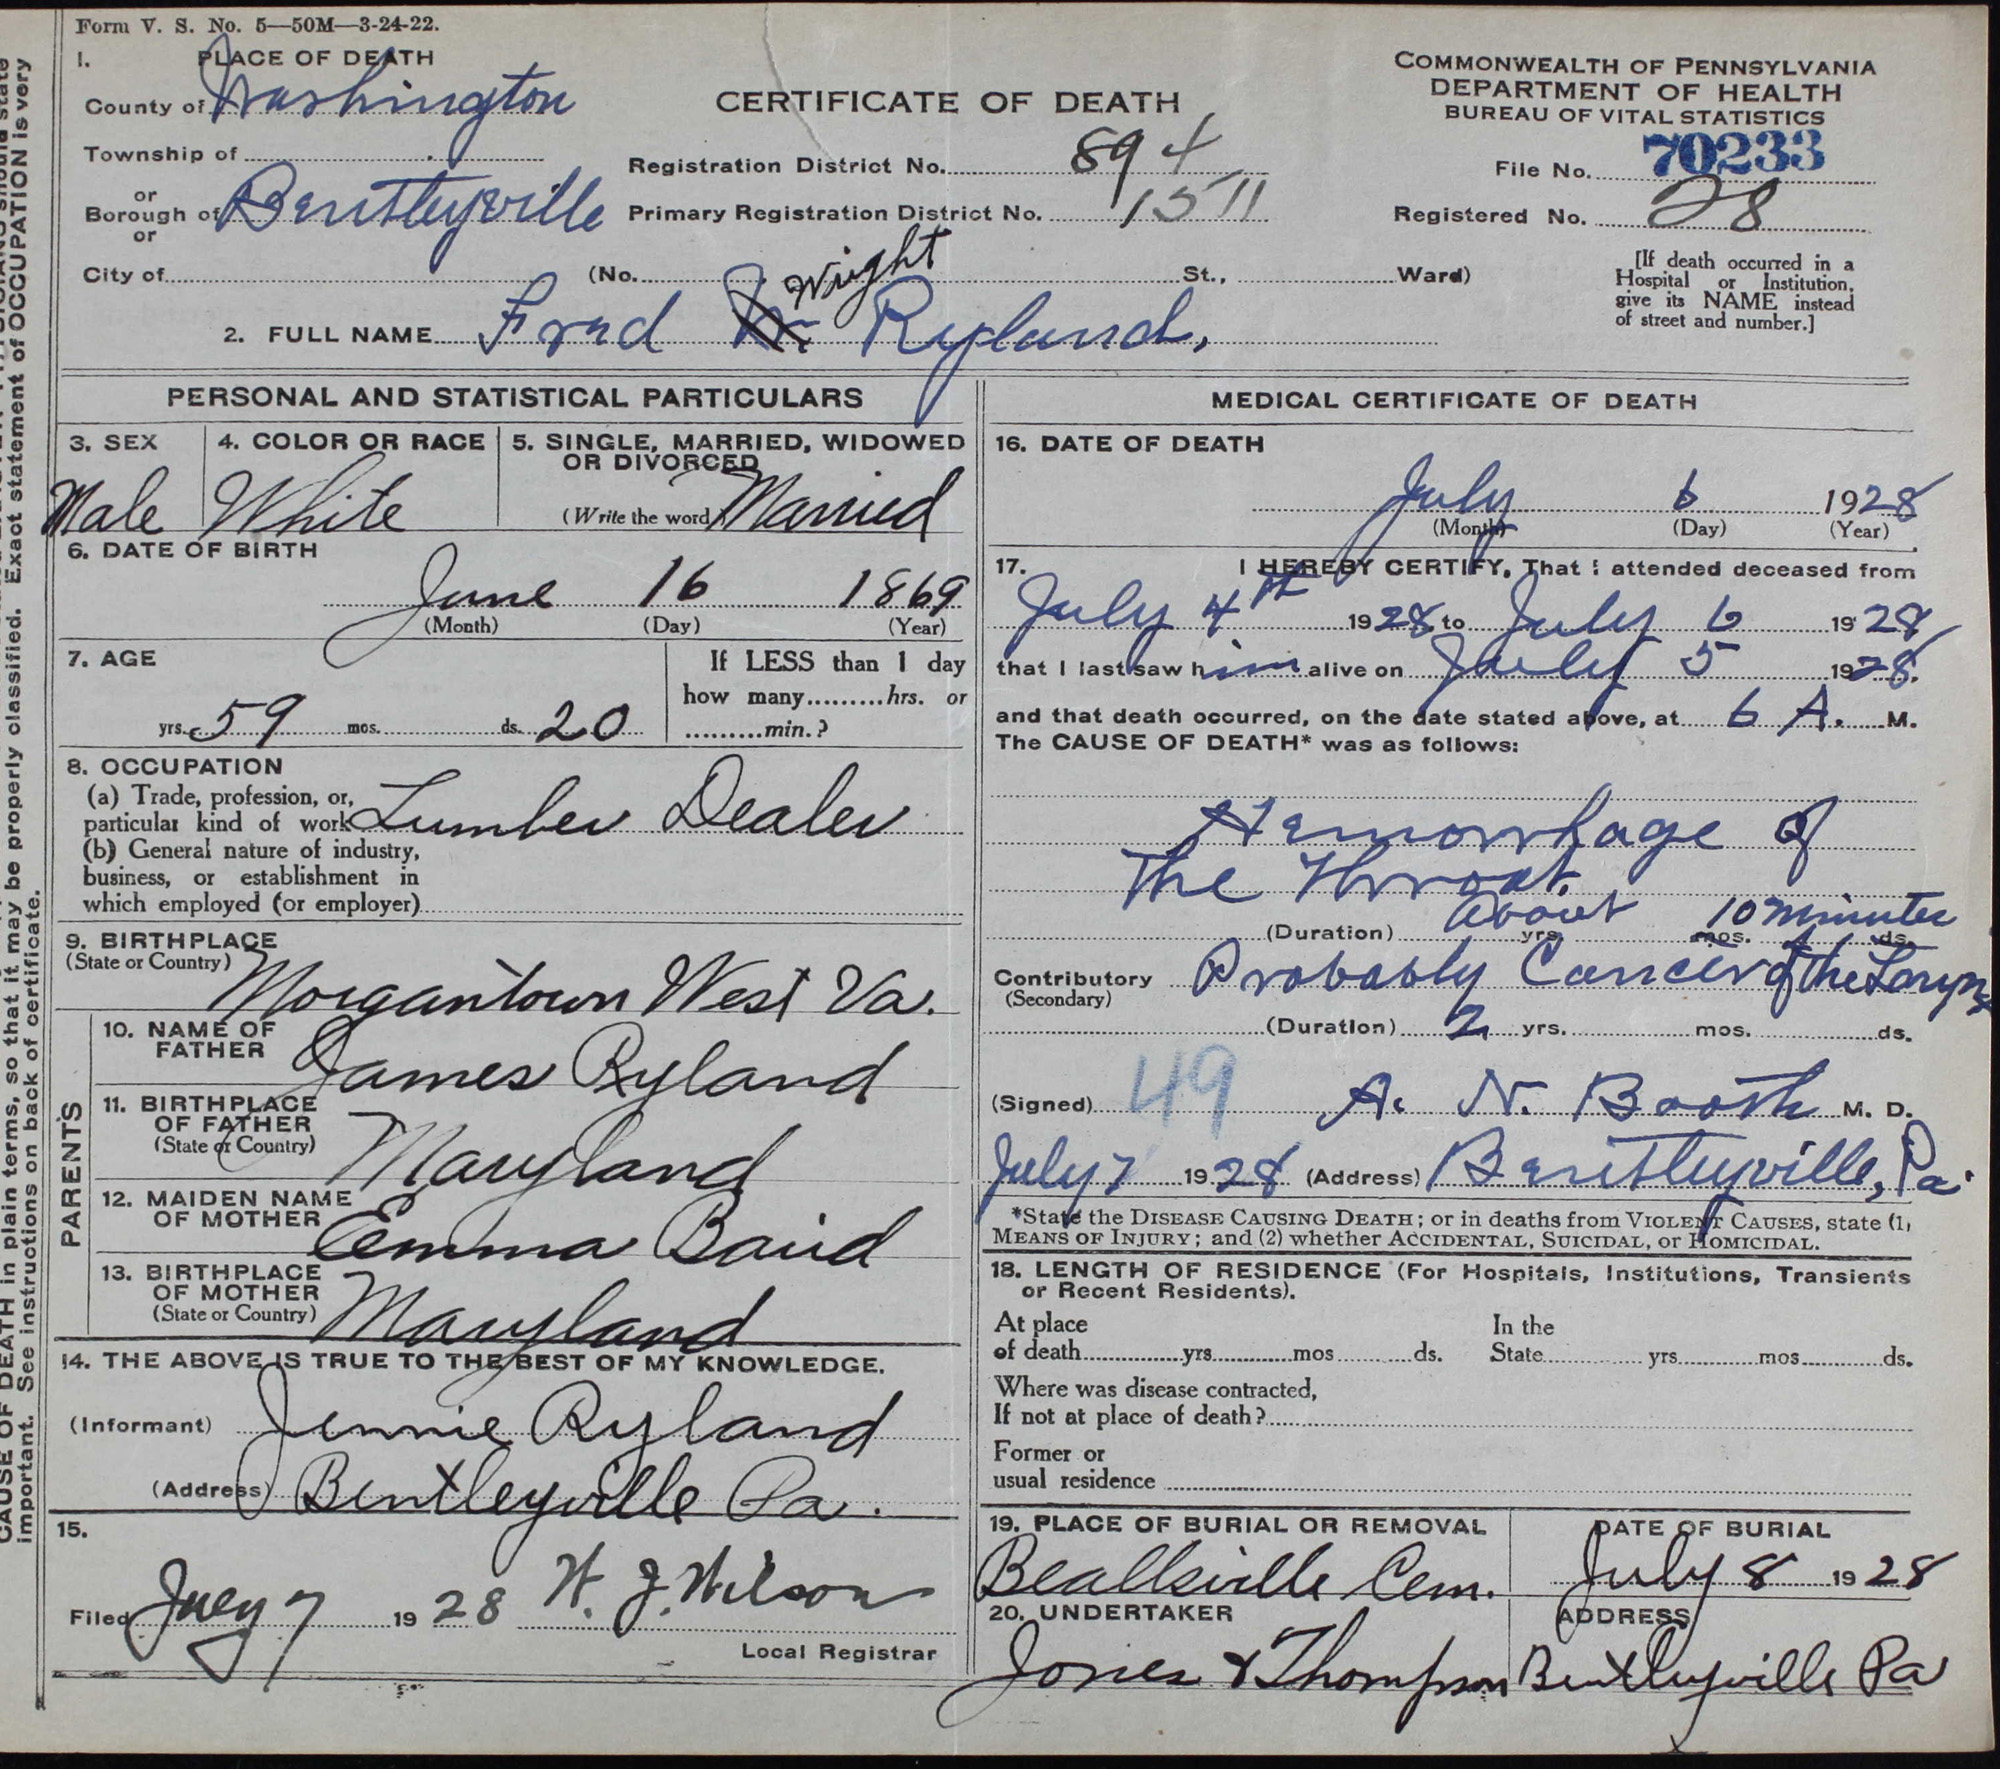 Form V. S. No. 5—50M—3-24-22.
1. PLACE OF DEATH
County of Washington
Township of
or
Borough of Bentleyville
or
City of (No. St., Ward)
CERTIFICATE OF DEATH
Registration District No. 894
Primary Registration District No. 1511
COMMONWEALTH OF PENNSYLVANIA
DEPARTMENT OF HEALTH
BUREAU OF VITAL STATISTICS
File No. 70233
Registered No. 28
[If death occurred in a
Hospital or Institution,
give its NAME instead
of street and number.]
Wright
2. FULL NAME Fred Ryland,
PERSONAL AND STATISTICAL PARTICULARS
3. SEX
Male
4. COLOR OR RACE
White
5. SINGLE, MARRIED, WIDOWED
OR DIVORCED
(Write the word) Married
6. DATE OF BIRTH
June 16 1869
(Month) (Day) (Year)
7. AGE
yrs. 59 mos. ds. 20
If LESS than 1 day
how many.........hrs. or
.........min.?
8. OCCUPATION
(a) Trade, profession, or,
particular kind of work Lumber Dealer
(b) General nature of industry,
business, or establishment in
which employed (or employer)
9. BIRTHPLACE
(State or Country)
Morgantown West Va.
PARENTS
10. NAME OF
FATHER
James Ryland
11. BIRTHPLACE
OF FATHER
(State or Country)
Maryland
12. MAIDEN NAME
OF MOTHER
Emma Baird
13. BIRTHPLACE
OF MOTHER
(State or Country)
Maryland
14. THE ABOVE IS TRUE TO THE BEST OF MY KNOWLEDGE.
(Informant) Jennie Ryland
(Address) Bentleyville Pa.
15.
Filed July 7 1928 W. J. Wilson
Local Registrar
MEDICAL CERTIFICATE OF DEATH
16. DATE OF DEATH
July 6 1928
(Month) (Day) (Year)
17. I HEREBY CERTIFY, That I attended deceased from
July 4th 1928, to July 6 1928
that I last saw him alive on July 5 1928,
and that death occurred, on the date stated above, at 6 A. M.
The CAUSE OF DEATH* was as follows:
Hemorrhage of
The Throat.
(Duration) About yrs. 10 minutes mos. ds.
Contributory Probably Cancer of the Larynx
(Secondary)
(Duration) 2 yrs. mos. ds.
49
(Signed) A. N. Booth M. D.
July 7 1928 (Address) Bentleyville, Pa.
*State the DISEASE CAUSING DEATH; or in deaths from VIOLENT CAUSES, state (1,
MEANS OF INJURY; and (2) whether ACCIDENTAL, SUICIDAL, or HOMICIDAL.
18. LENGTH OF RESIDENCE (For Hospitals, Institutions, Transients
or Recent Residents).
At place In the
of death yrs. mos. ds. State yrs. mos. ds.
Where was disease contracted,
If not at place of death?
Former or
usual residence
19. PLACE OF BURIAL OR REMOVAL
Beallsville Cem.
DATE OF BURIAL
July 8 1928
20. UNDERTAKER
Jones & Thompson
ADDRESS
Bentleyville Pa
CAUSE OF DEATH in plain terms, so that it may be properly classified. Exact statement of OCCUPATION is very
important. See instructions on back of certificate.